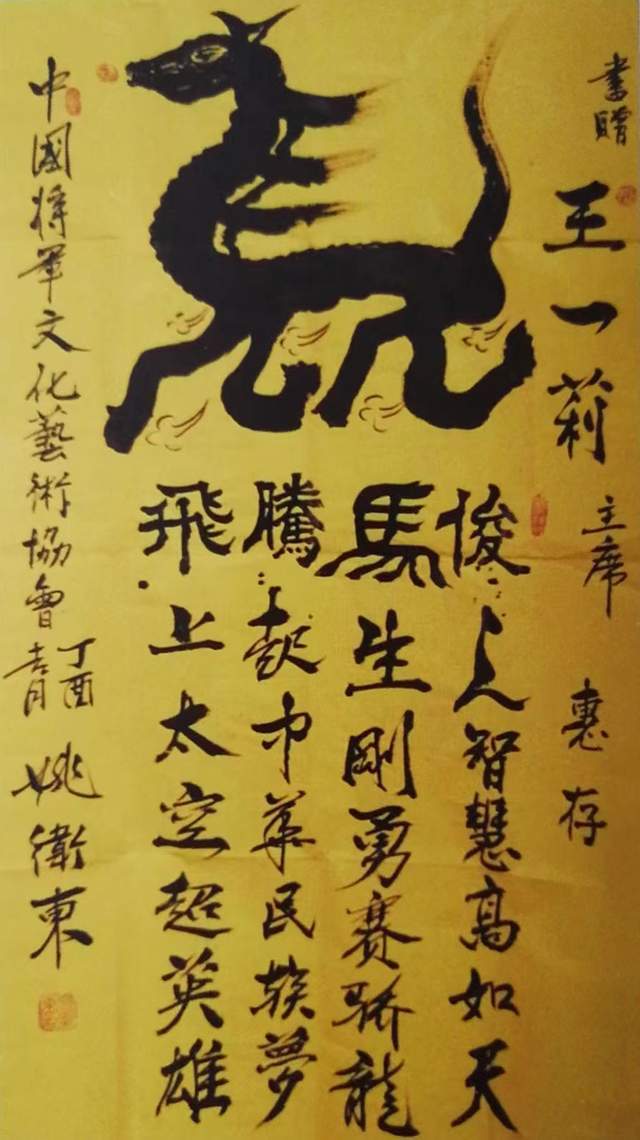 書贈 王一莉 主席 惠存
俊之智慧高如天
馬生剛勇賽驕龍
騰起中華民族夢
飛上太空超英雄
中國將軍文化藝術協會 丁酉 姚衛東